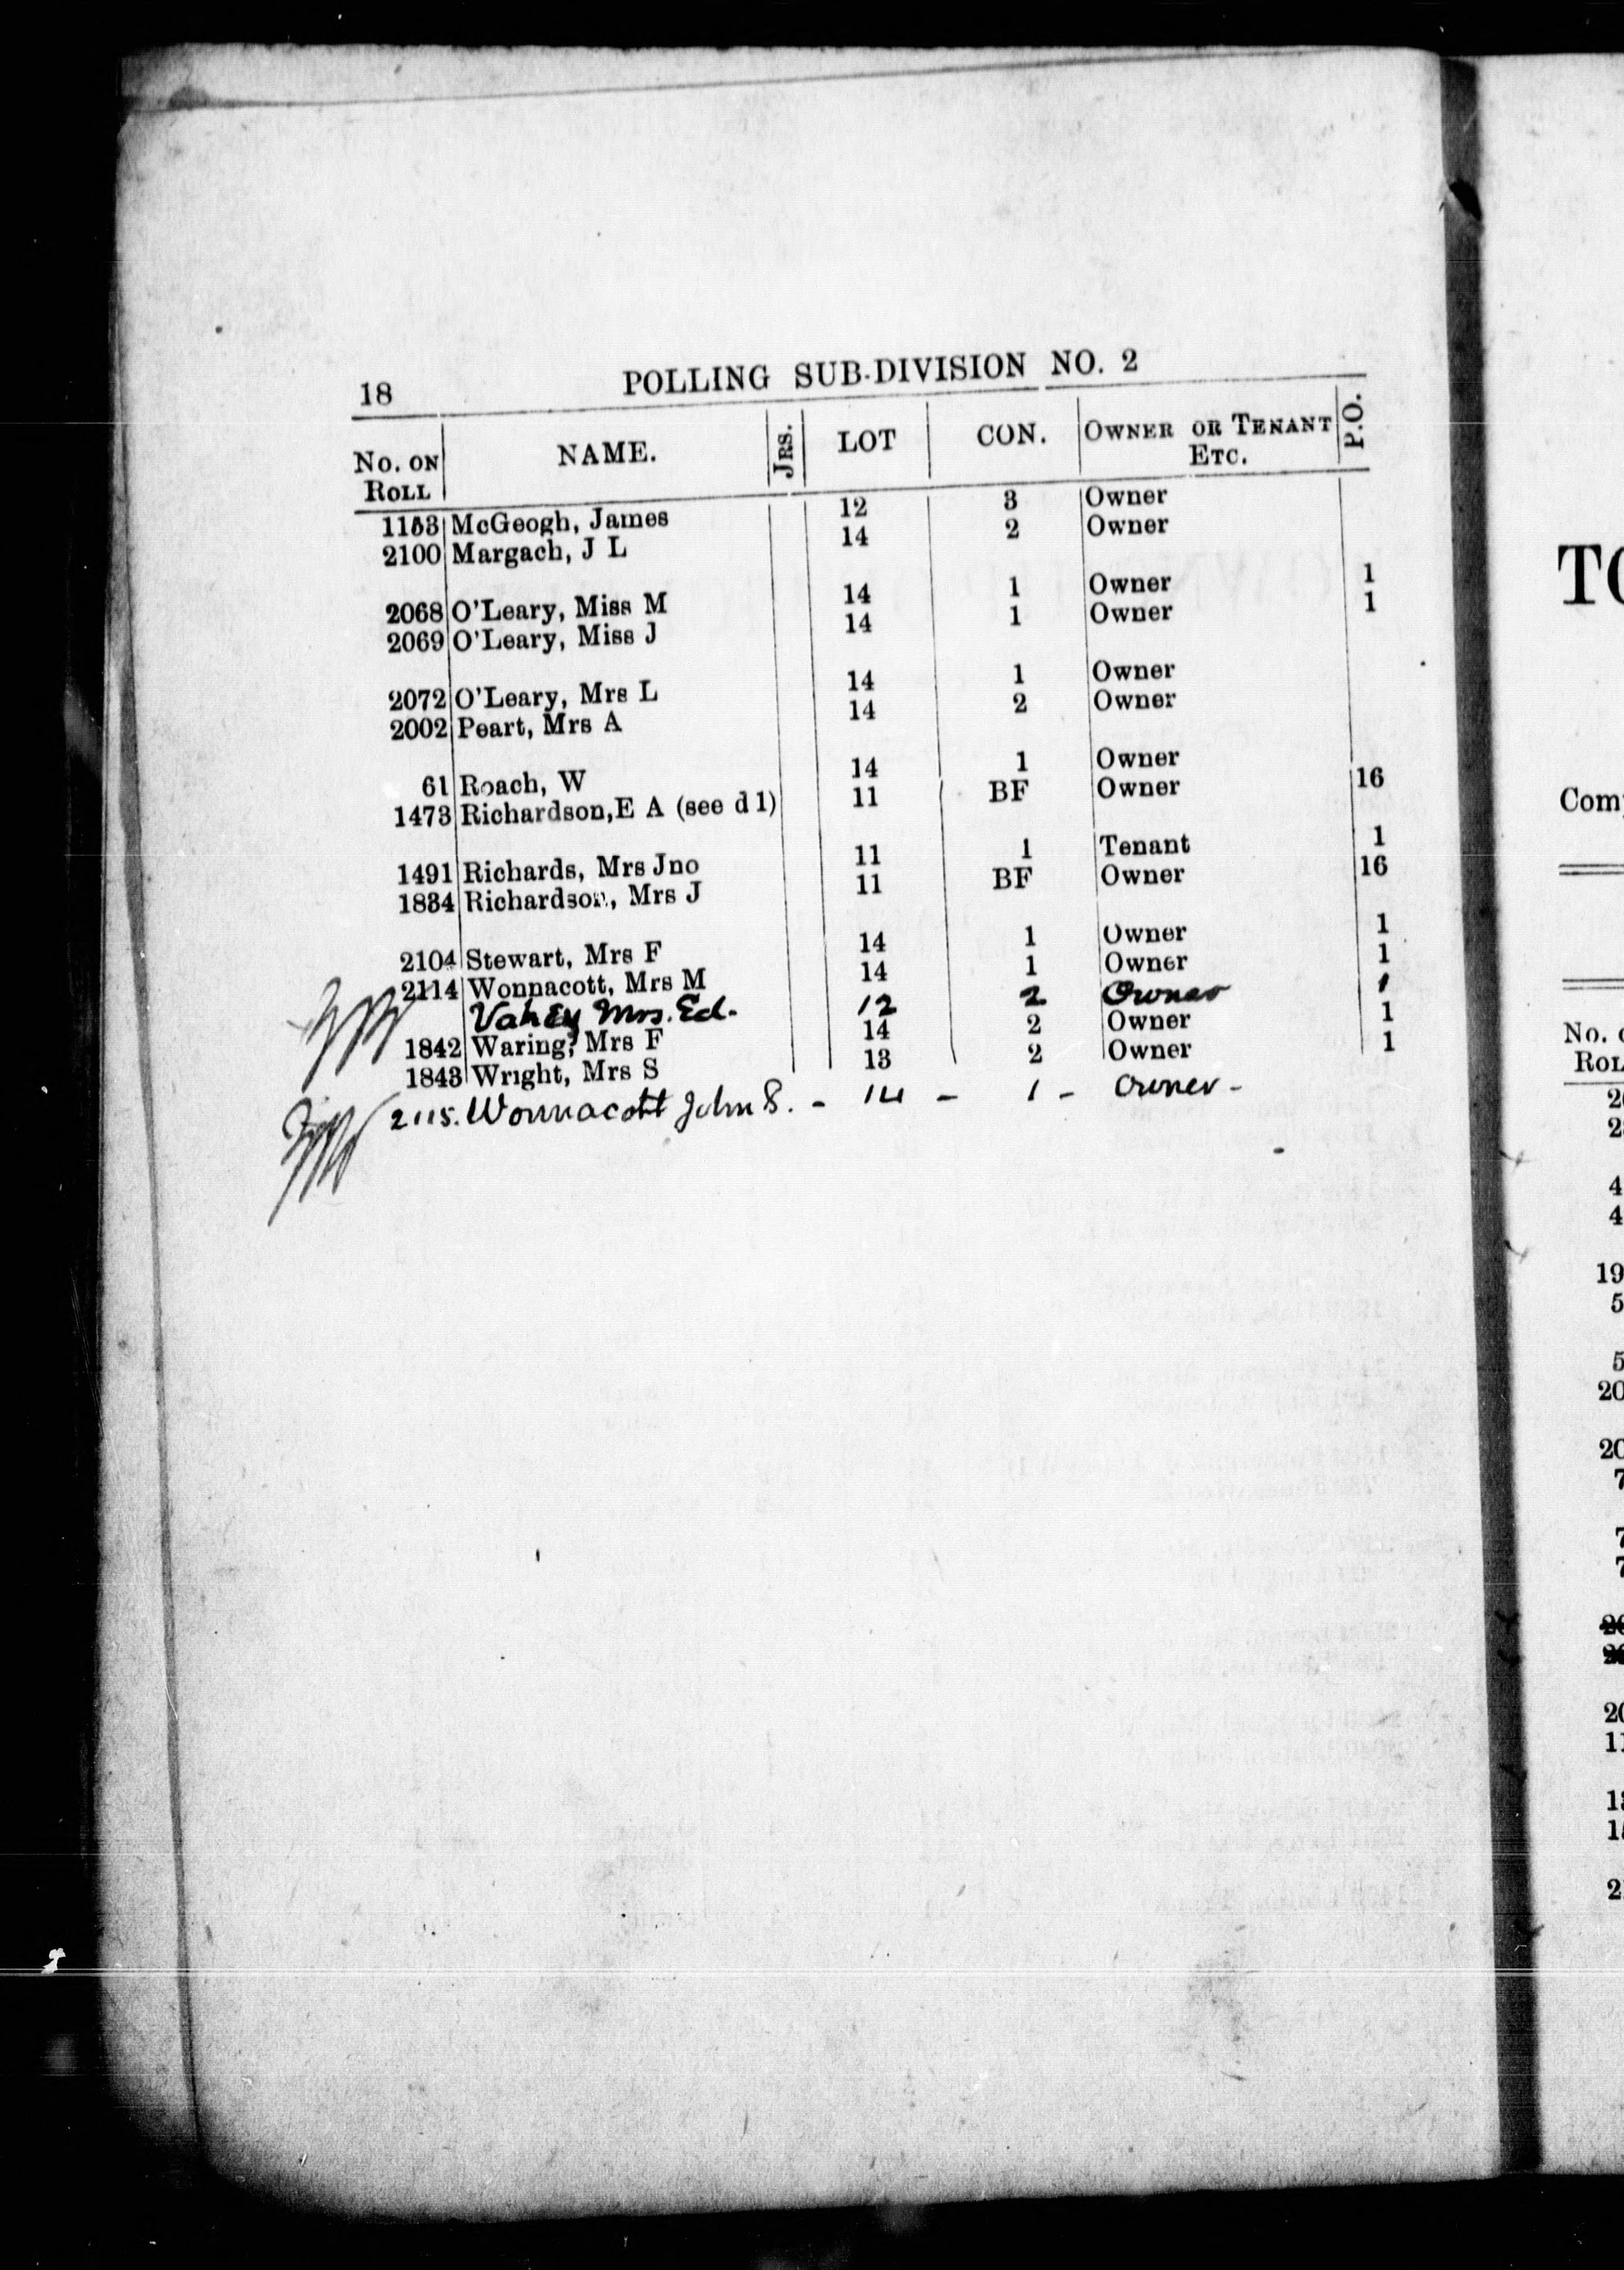 18 POLLING SUB-DIVISION NO. 2
No. on Roll NAME. Jrs. LOT CON. Owner or Tenant Etc. P.O.
1153 McGeogh, James 12 3 Owner
2100 Margach, J L 14 2 Owner
2068 O'Leary, Miss M 14 1 Owner 1
2069 O'Leary, Miss J 14 1 Owner 1
2072 O'Leary, Mrs L 14 1 Owner
2002 Peart, Mrs A 14 2 Owner
61 Roach, W 14 1 Owner
1473 Richardson,E A (see d 1) 11 BF Owner 16
1491 Richards, Mrs Jno 11 1 Tenant 1
1834 Richardson, Mrs J 11 BF Owner 16
2104 Stewart, Mrs F 14 1 Owner 1
2114 Wonnacott, Mrs M 14 1 Owner 1
Vahey Mrs. Ed. 12 2 Owner 1
1842 Waring, Mrs F 14 2 Owner 1
1843 Wright, Mrs S 13 2 Owner 1
2115. Wonnacott John S. - 14 - 1 - Owner -